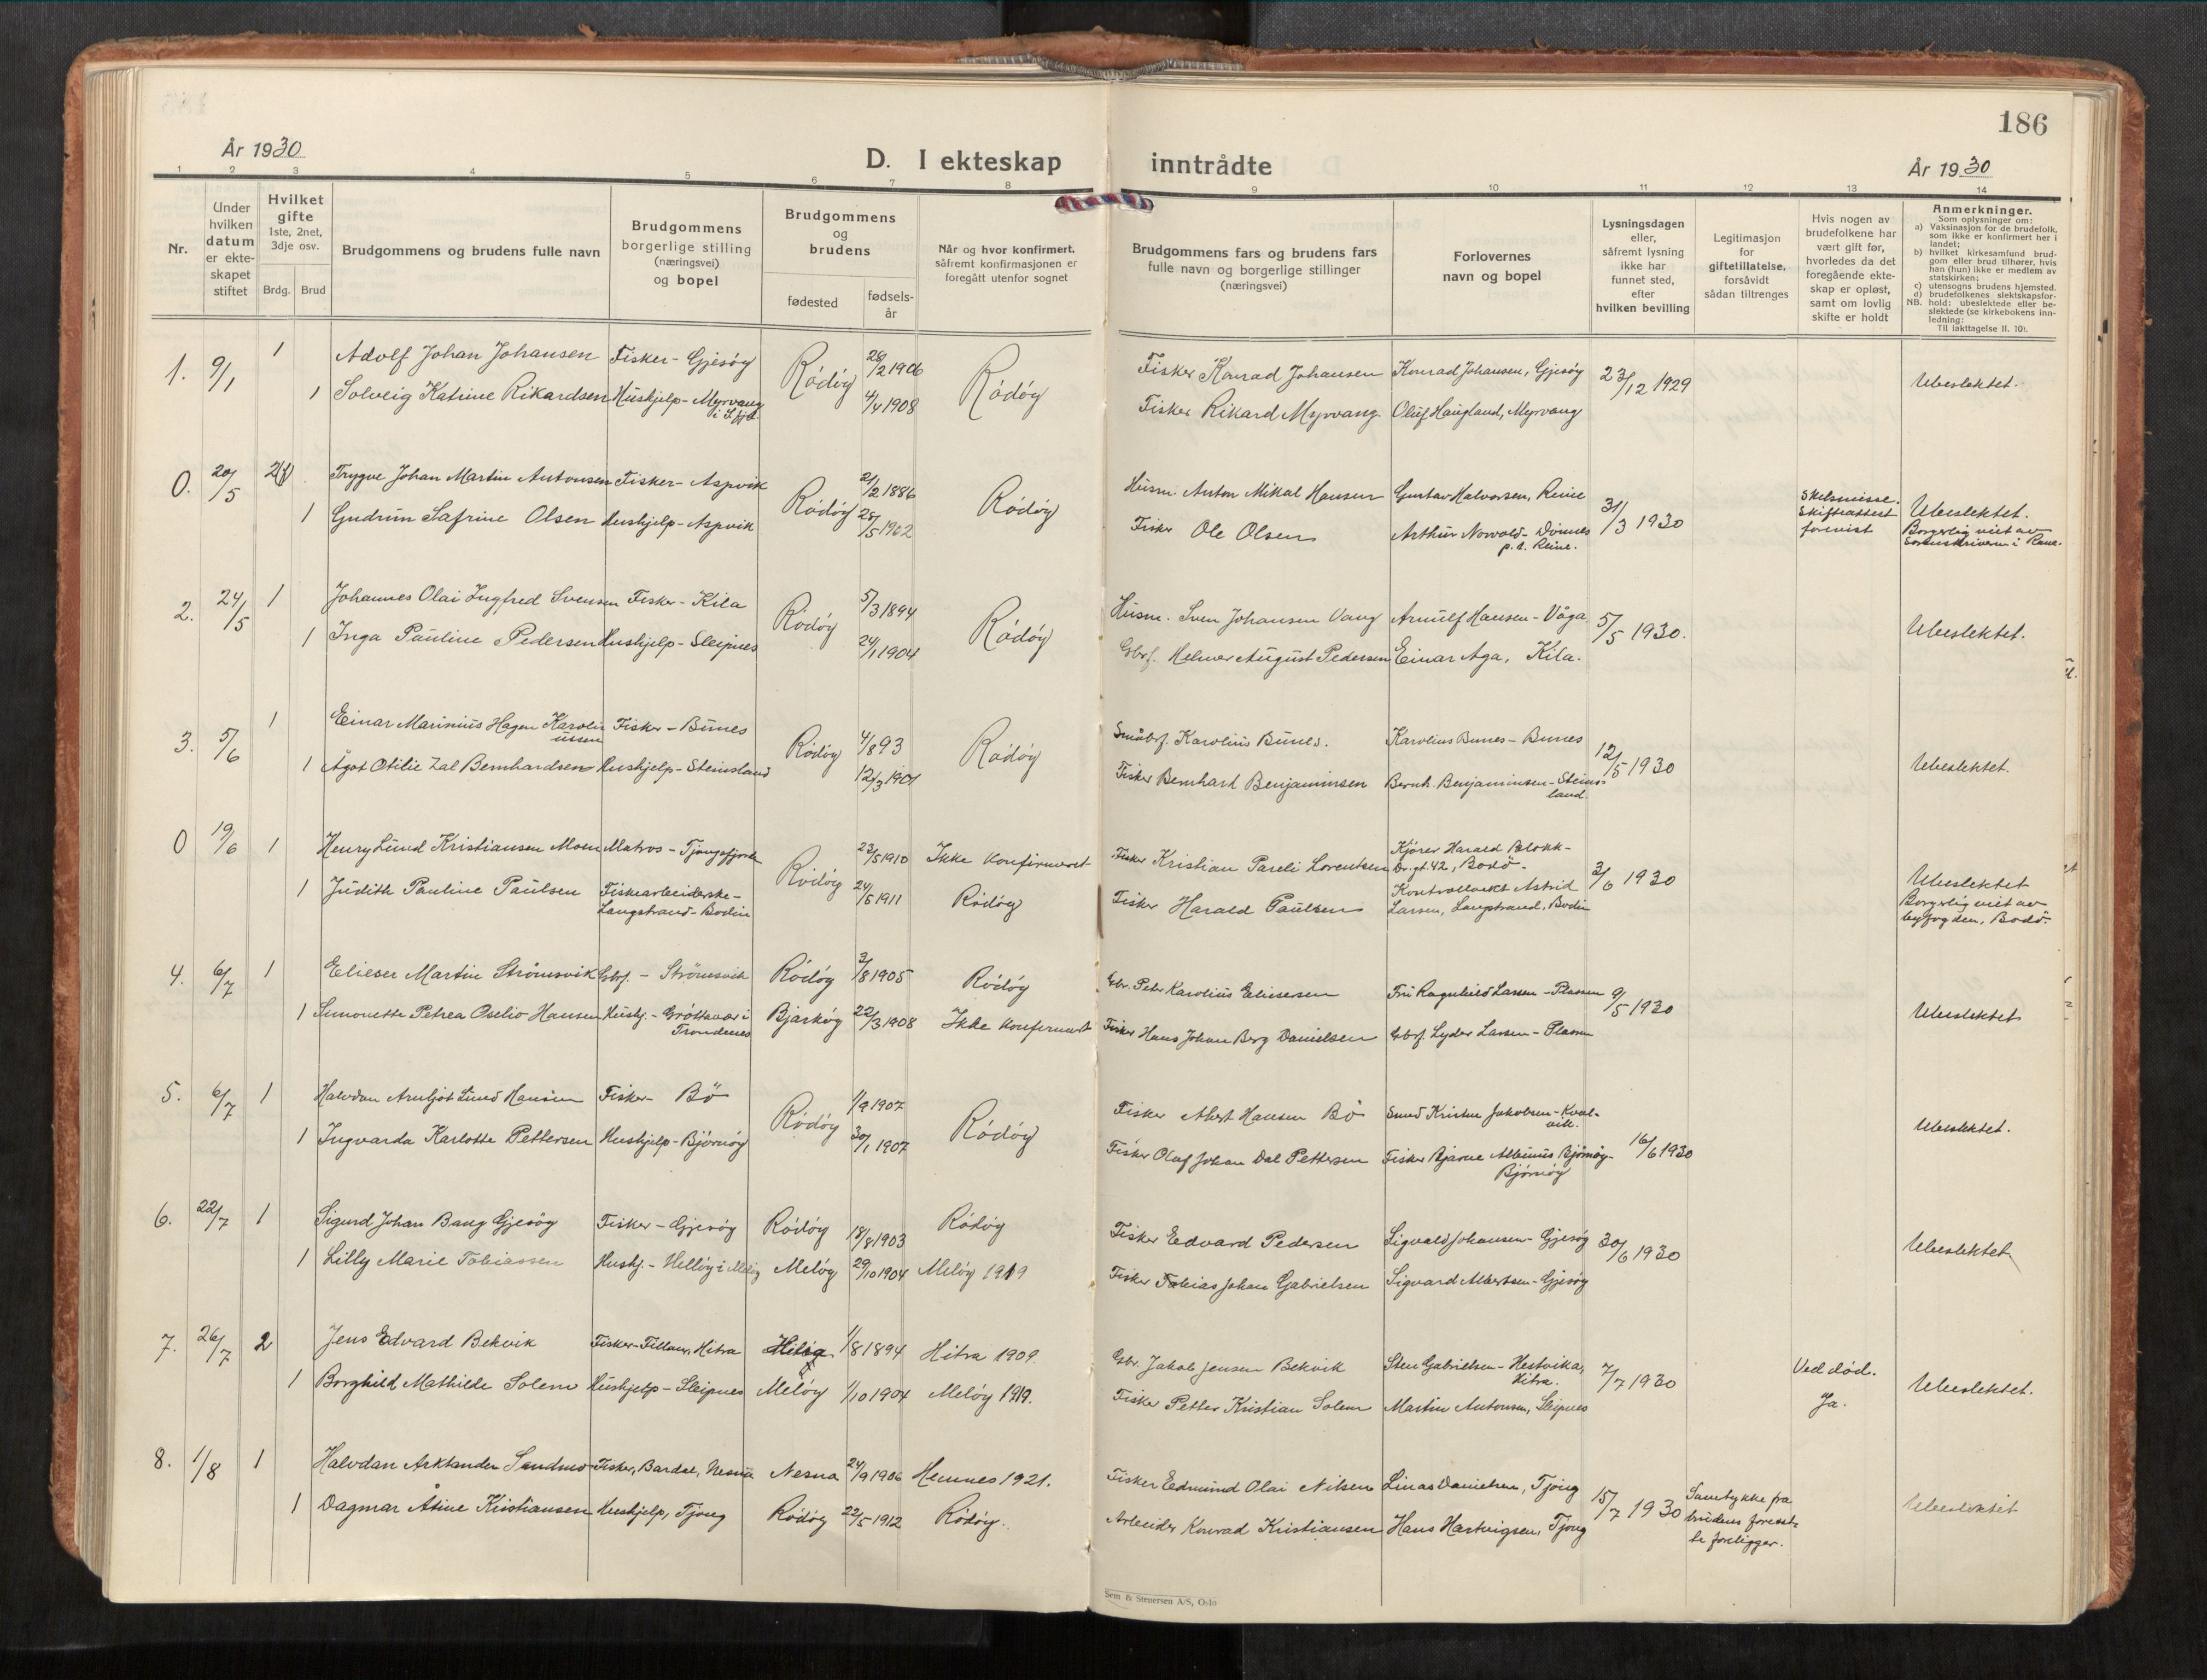 186
År 1930
D. I ekteskap inntrådte
År 1930
1 2 3 4 5 6 7 8 9 10 11 12 13 14
Nr.
Under hvilken datum er ekte-skapet stiftet
Hvilket gifte 1ste, 2net, 3dje osv.
Brdg. Brud
Brudgommens og brudens fulle navn
Brudgommens borgerlige stilling (næringsvei) og bopel
Brudgommens og brudens
fødested
fødsels-år
Når og hvor konfirmert, såfremt konfirmasjonen er foregått utenfor sognet
Brudgommens fars og brudens fars fulle navn og borgerlige stillinger (næringsvei)
Forlovernes navn og bopel
Lysningsdagen eller, såfremt lysning ikke har funnet sted, efter hvilken bevilling
Legitimasjon for giftetillatelse, forsåvidt sådan tiltrenges
Hvis nogen av brudefolkene har vært gift før, hvorledes da det foregående ekte-skap er opløst, samt om lovlig skifte er holdt
Anmerkninger.
Som oplysninger om:
a) Vaksinasjon for de brudefolk, som ikke er konfirmert her i landet;
b) hvilket kirkesamfund brud-gom eller brud tilhører, hvis han (hun) ikke er medlem av statskirken;
c) utensogns brudens hjemsted.
d) brudefolkenes slektskapsfor-hold: ubeslektede eller be-slektede (se kirkebokens inn-ledning:
NB.
Til iakttagelse II. 10).
1. 9/1 1 Adolf Johan Johansen Fisker - Gjesøy Rödöy 26/2 1906 Rödöy Fisker Konrad Johansen Konrad Johansen, Gjesöy 23/12 1929 Ubeslektet.
1 Solveig Katrine Rikardsen Hushjelp - Myrvang 4/4 1908 Fisker Rikard Myrvang. Oluf Haugland, Myrvang
0. 20/5 2 Trygve Johan Martin Antonsen Fisker - Aspvik Rödöy 21/2 1886 Rödöy Husm. Anton Mikal Hansen Gustav Halvorsen, Reine 31/3 1930 Skilsmisse. Skifteattest forevist Ubeslektet. Borgerlig viet av Sorenskriveren i Rana.
1 Gudrun Safrine Olsen Hushjelp - Aspvik 28/5 1902 Fisker Ole Olsen Arthur Norvold - Dönnes p.t. Reine.
2. 24/5 1 Johannes Olai Ingfred Svensen Fisker - Kila Rödöy 5/3 1894 Rödöy Husm. Sven Johansen Vang Arnulf Hansen - Våga 5/5 1930. Ubeslektet.
1 Inga Pauline Pedersen Hushjelp - Sleipnes 24/1 1904 Gbrf. Helmer August Pedersen Einar Aga, Kila.
3. 5/6 1 Einar Marinius Hagen Karoliussen Fisker - Bunes Rödöy 4/8 93 Rödöy Småbrf. Karolius Bunes. Karolius Bunes - Bunes 12/5 1930 Ubeslektet.
1 Ågot Otilie Zal Bernhardsen Hushjelp - Steinsland 12/3 1901 Fisker Bernhard Benjaminsen Bernh. Benjaminsen - Steinsland.
0 19/6 1 Henry Lund Kristiansen Moen Matros - Tjongsfjorden Rödöy 23/5 1910 Ikke konfirmert Fisker Kristian Pareli Lorentsen Kjörer Harald Blokk - Dr.gt. 42, Bodö. 3/6 1930 Ubeslektet Borgerlig viet av byfogden, Bodö.
1 Judith Pauline Paulsen Fiskearbeiderske - Langstrand - Bodin 24/5 1911 Rödöy Fisker Harald Paulsen Kontrollvekt Astrid Larsen, Langstrand, Bodin
4. 6/7 1 Elieser Martin Strömsvik Gbrf. - Strömsvik Rödöy 3/8 1905 Rödöy Gbr. Peder Karolius Eliesersen Fru Ragnhild Larsen - Plassen 9/5 1930 Ubeslektet
1 Simonette Petrea Oselio Hansen Hushj. - Gröttavær i Trondenes Bjarköy 22/3 1908 Ikke konfirmert Fisker Hans Johan Berg Danielsen Gbrf. Lyder Larsen - Plassen
5. 6/7 1 Halvdan Arnljot Lund Hansen Fisker - Bö Rödöy 1/9 1907 Rödöy Fisker Albert Hansen Bö Smed Kristen Jakobsen - Kvalvik. 16/6 1930 Ubeslektet.
1 Ingvarda Karlotte Pettersen Hushjelp - Björnöy 30/1 1907 Fisker Olaf Johan Dal Pettersen Fisker Bjarne Albinius Björnöy - Björnöy
6. 22/7 1 Sigurd Johan Bang Gjesöy Fisker - Gjesöy Rödöy 18/8 1903 Rödöy Fisker Edvard Pedersen Sigvald Johansen - Gjesöy 30/6 1930 Ubeslektet
1 Lilly Marie Tobiassen Hushj. - Hellöy i Melöy Melöy 29/10 1904 Melöy 1919 Fisker Tobias Johan Gabrielsen Sigvard Albertsen - Gjesöy
7. 26/7 2 Jens Edvard Bekvik Fisker - Fillan, Hitra Hitra 1/8 1894 Hitra 1909. Gbr. Jakob Jensen Bekvik Sten Gabrielsen - Hestvika, Hitra. 7/7 1930 Ved död. Ja. Ubeslektet.
1 Borghild Mathilde Solem Hushjelp - Sleipnes Melöy 1/10 1904 Melöy 1919. Fisker Petter Kristian Solem Martin Antonsen, Sleipnes
8. 1/8 1 Halvdan Arktander Sandmo Fisker, Bardal, Nesna Nesna 24/9 1906 Hemnes 1921. Fisker Edmund Olai Nilsen Linas Danielsen, Tjong 15/7 1930 Samtykke fra brudens foresatte foreligger. Ubeslektet
1 Dagmar Åtine Kristiansen Hushjelp, Tjong Rödöy 22/5 1912 Rödöy. Arbeider Konrad Kristiansen Hans Hartvigsen, Tjong
Sem & Stenersen A/S, Oslo